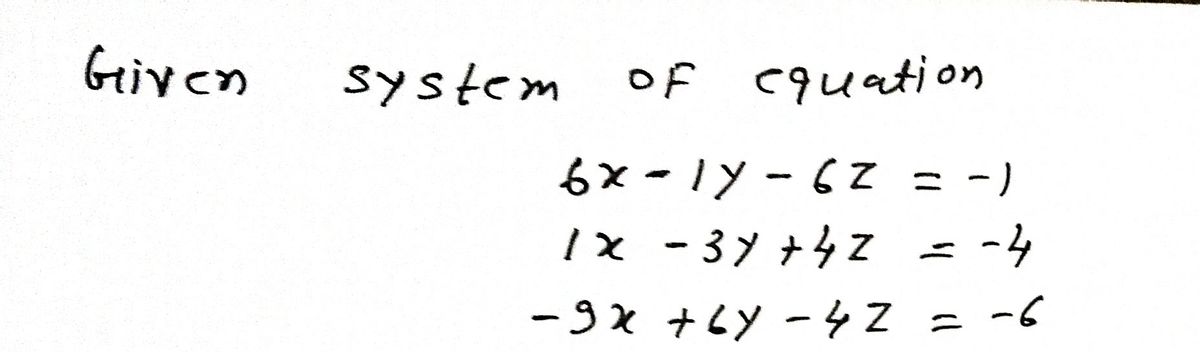 Given system of equation
6x - 1y - 6z = -1
1x - 3y + 4z = -4
-9x + 6y - 4z = -6